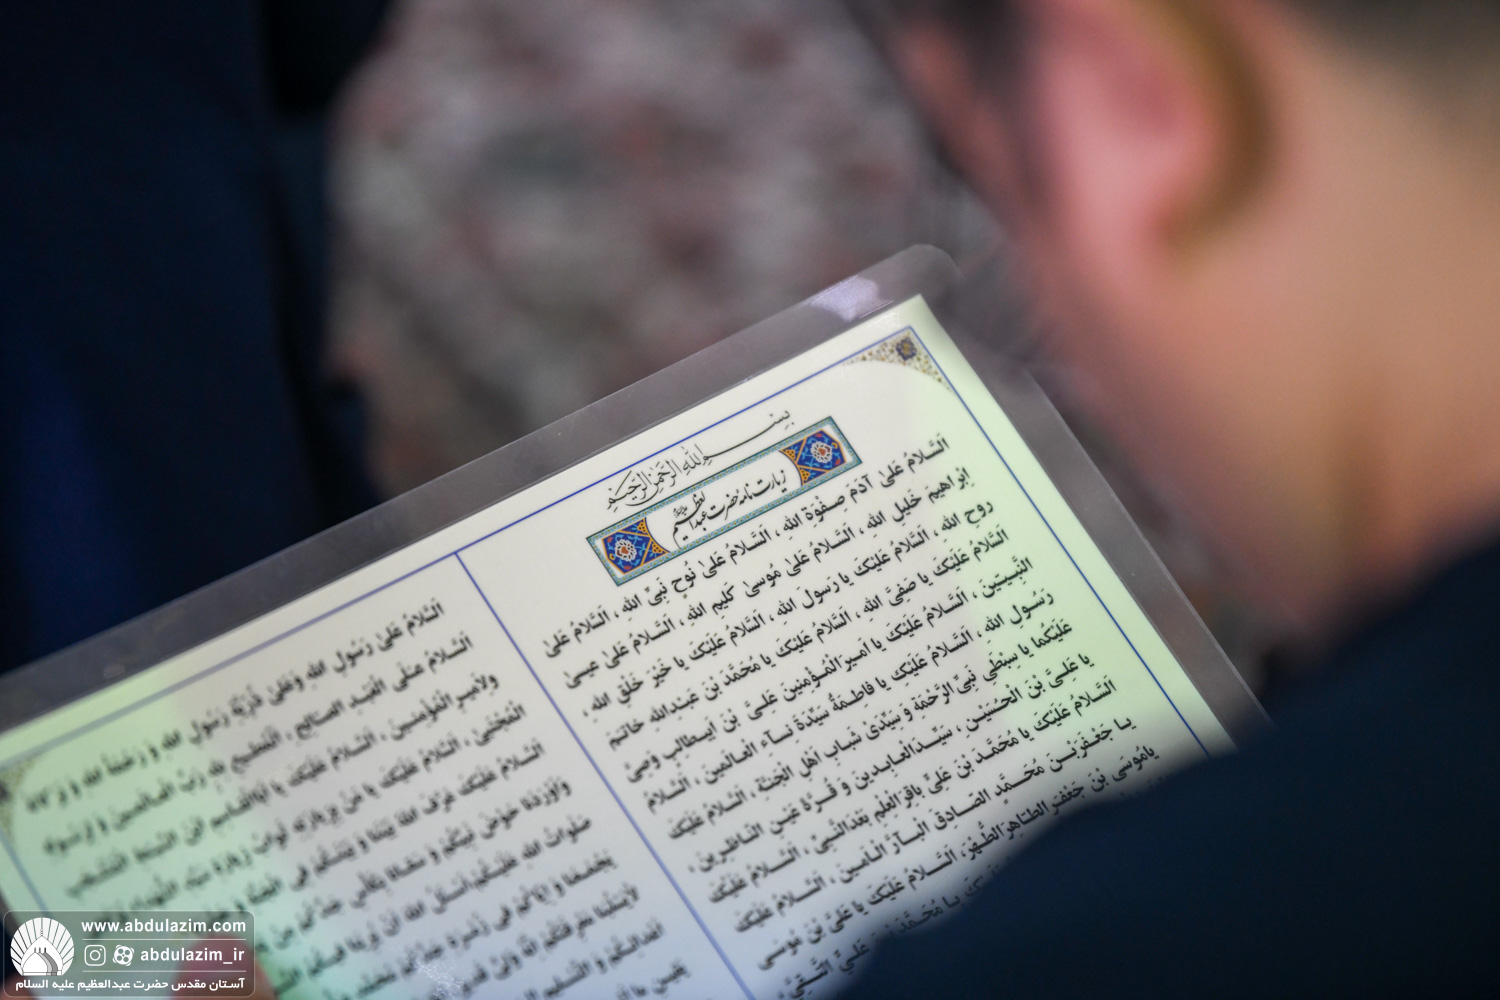 بِسْمِ اللهِ الرَّحْمٰنِ الرَّحِیمِ
زیارت نامه حضرت عبدالعظیم
اَلسَّلامُ عَلیٰ آدَمَ صِفْوَةِ اللهِ ، اَلسَّلامُ عَلیٰ نُوحٍ نَبِیِّ اللهِ ، اَلسَّلامُ عَلیٰ
اِبْراهیمَ خَلیلِ اللهِ ، اَلسَّلامُ عَلیٰ مُوسیٰ کَلیمِ اللهِ ، اَلسَّلامُ عَلیٰ عیسیٰ
روحِ اللهِ ، اَلسَّلامُ عَلَیْکَ یا رَسولَ اللهِ ، اَلسَّلامُ عَلَیْکَ یا خَیْرَ خَلْقِ اللهِ ،
اَلسَّلامُ عَلَیْکَ یا صَفِیَّ اللهِ ، اَلسَّلامُ عَلَیْکَ یا مُحَمَّدَ بْنَ عَبْدِاللهِ خاتَمَ
النَّبِیّینَ ، اَلسَّلامُ عَلَیْکَ یا اَمیرَ الْمُؤْمِنینَ عَلِیَّ بْنَ اَبیطالِبٍ وَصِیَّ
رَسُولِ اللهِ ، اَلسَّلامُ عَلَیْکِ یا فاطِمَةُ سَیِّدَةَ نِسآءِ الْعالَمینَ ، اَلسَّلامُ
عَلَیْکُما یا سِبْطَیْ نَبِیِّ الرَّحْمَةِ وَ سَیِّدَیْ شَبابِ اَهْلِ الْجَنَّةِ ، اَلسَّلامُ عَلَیْکَ
یا عَلِیَّ بْنَ الْحُسَیْنِ ، سَیِّدَ الْعابِدینَ وَ قُرَّةَ عَیْنِ النّاظِرینَ ،
اَلسَّلامُ عَلَیْکَ یا مُحَمَّدَ بْنَ عَلِیٍّ باقِرَ الْعِلْمِ بَعْدَ النَّبِیِّ ، اَلسَّلامُ عَلَیْکَ
یا جَعْفَرَ بْنَ مُحَمَّدٍ الصّادِقَ الْبآرَّ الْاَمینَ ، اَلسَّلامُ عَلَیْکَ
یا مُوسَی بْنَ جَعْفَرٍ الطّاهِرَ الطُّهْرَ ، اَلسَّلامُ عَلَیْکَ یا عَلِیَّ بْنَ موسَی
یا مُحَمَّدَ بْنَ عَلِیٍّ التَّقِیَّ
اَلسَّلامُ عَلیٰ رَسُولِ اللهِ وَ عَلیٰ ذُرِّیَّةِ رَسُولِ اللهِ وَ رَحْمَةُ اللهِ وَ بَرَکاتُهُ
اَلسَّلامُ عَلَی الْعَبْدِ الصالِحِ ، اَلْمُطیعِ لِلّٰهِ رَبِّ الْعالَمینَ وَ لِرَسُولِهِ
وَ لِاَمیرِ الْمُؤْمِنینَ ، اَلسَّلامُ عَلَیْکَ یا اَبَاالْقاسِمِ ابْنَ السِّبْطِ الْمُنْتَجَبِ
الْمُجْتَبیٰ ، اَلسَّلامُ عَلَیْکَ یا مَنْ بِزِیارَتِهِ ثَوابُ زِیارَةِ سَیِّدِ الشُّهَداءِ
اَلسَّلامُ عَلَیْکَ عَرَّفَ اللهُ بَیْنَنا وَ بَیْنَکُمْ فِی الْجَنَّةِ
وَ اَوْرَدَنا حَوْضَ نَبِیِّکُمْ وَ سَقانا بِکَأْسِ جَدِّکُمْ مِنْ
صَلَواتُ اللهِ عَلَیْکُمْ اَسْئَلُ اللهَ اَنْ یُرِیَنا فیکُمُ
یَجْمَعَنا وَ اِیّاکُمْ فی زُمْرَةِ جَدِّکُمْ مُحَمَّدٍ
لا یَسْلُبَنا مَعْرِفَتَکُمْ اِنَّهُ وَلِیٌّ قَدیرٌ
www.abdulazim.com
abdulazim_ir
آستان مقدس حضرت عبدالعظیم علیه السلام